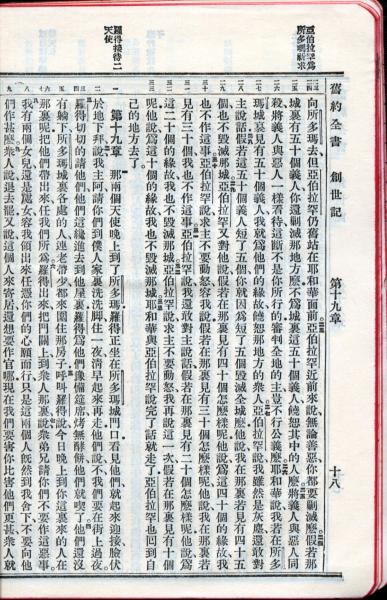 亞伯拉罕爲
所多瑪祈求
羅得接待二
天使
舊約全書 創世記 第十九章 十八
向所多瑪去但亞伯拉罕仍舊站在耶和華面前亞伯拉罕近前來說無論善惡你都要剿滅麼假若那
城裏有五十個義人你還剿滅那地方麼不爲城裏這五十個義人饒恕其中的人麼將義人與惡人同
殺將義人與惡人一樣看待這斷不是你所行的審判全地的主豈不行公義麼耶和華說我若在所多
瑪城裏見有五十個義人我就爲他們的緣故饒恕那地方的衆人亞伯拉罕說我雖然是灰塵還敢對
主說話假若這五十個義人短了五個你就因爲短了五個毀滅全城麼他說我在那裏若見有四十五
個也不毀滅那城亞伯拉罕又對他說假若在那裏見有四十個怎麼樣呢他說爲這四十個的緣故我
也不作這事亞伯拉罕說求主不要動怒容我說假若在那裏見有三十個怎麼樣呢他說我在那裏若
見有三十個我也不作這事亞伯拉罕說我還敢對主說話假若在那裏見有二十個怎麼樣呢他說爲
這二十個的緣故我也不毀滅那城亞伯拉罕說求主不要動怒我再說這一次假若在那裏見有十個
呢他說爲這十個的緣故我也不毀滅那城耶和華與亞伯拉罕說完了話就走了亞伯拉罕也回到自
己的地方去了
第十九章 那兩個天使晚上到了所多瑪羅得正坐在所多瑪城門口看見他們就起來迎接臉伏
於地下拜說我主阿請你們到僕人家裏洗洗腳住一夜清早起來再走他們說不我們要在街上過夜
羅得切切的請他們他們這纔進去到他屋裏羅得爲他們豫備筵席烤無酵餅他們就喫了他們還沒
有躺下所多瑪城裏各處的人連老帶少都來圍住那房子呼叫羅得說今日晚上到你這裏來的人在
那裏呢把他們帶出來任我們所爲羅得出來把門關上到衆人那裏說衆弟兄請你們不要作這惡事
我有兩個女兒還是處女容我領出來任憑你們的心願而行只是這兩個人既然到我舍下不要向他
們作甚麼衆人說退去罷又說這個人來寄居還想要作官哪現在我們要害你比害他們更甚衆人就